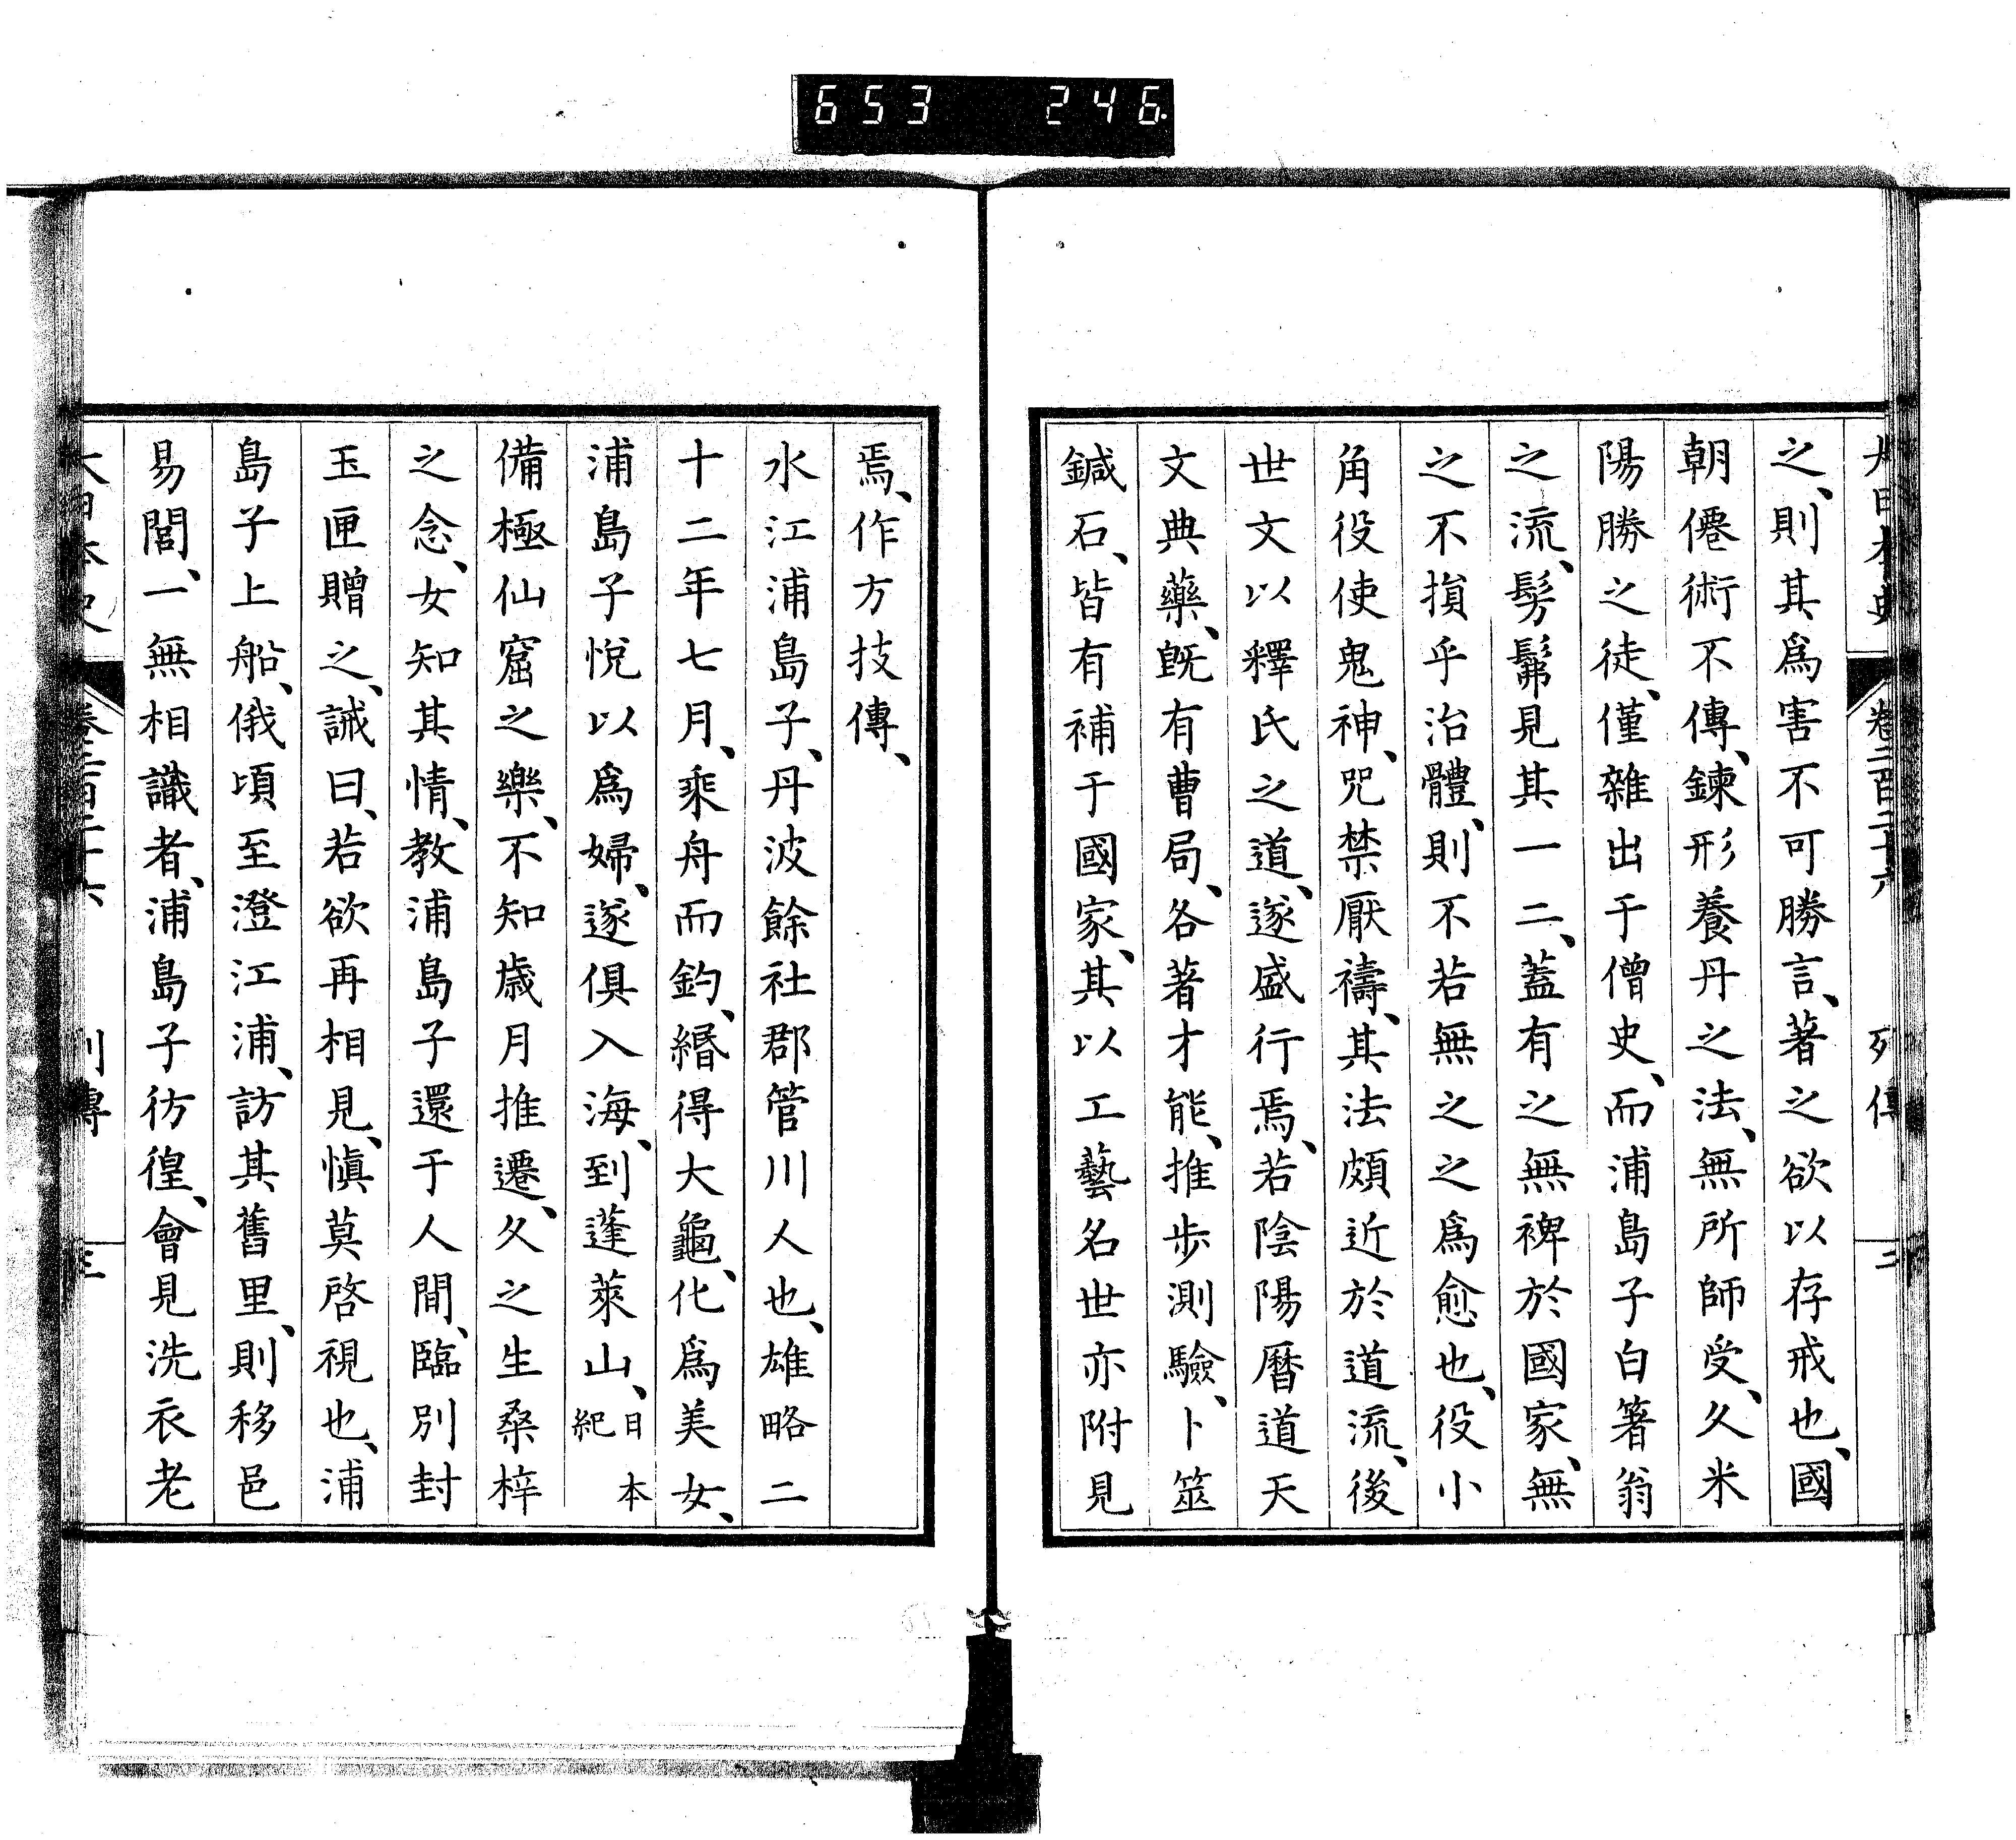 653 246
大日本史 卷二百二十六 列傳 三
之、則其爲害不可勝言、著之欲以存戒也、國
朝僊術不傳、鍊形養丹之法、無所師受、久米
陽勝之徒、僅雜出于僧史、而浦島子白箸翁
之流、髣髴見其一二、蓋有之無裨於國家、無
之不損乎治體、則不若無之之爲愈也、役小
角役使鬼神、咒禁厭禱、其法頗近於道流、後
世文以釋氏之道、遂盛行焉、若陰陽曆道天
文典藥、既有曹局、各著才能、推步測驗、卜筮
鍼石、皆有補于國家、其以工藝名世亦附見
焉、作方技傳、
水江浦島子、丹波餘社郡管川人也、雄略二
十二年七月、乘舟而釣、緡得大龜、化爲美女、
浦島子悅以爲婦、遂俱入海、到蓬萊山、日本紀
備極仙窟之樂、不知歲月推遷、久之生桑梓
之念、女知其情、教浦島子還于人間、臨別封
玉匣贈之、誡曰、若欲再相見、愼莫啓視也、浦
島子上船、俄頃至澄江浦、訪其舊里、則移邑
易閭、一無相識者、浦島子彷徨、會見洗衣老
大日本史 卷二百二十六 列傳 三